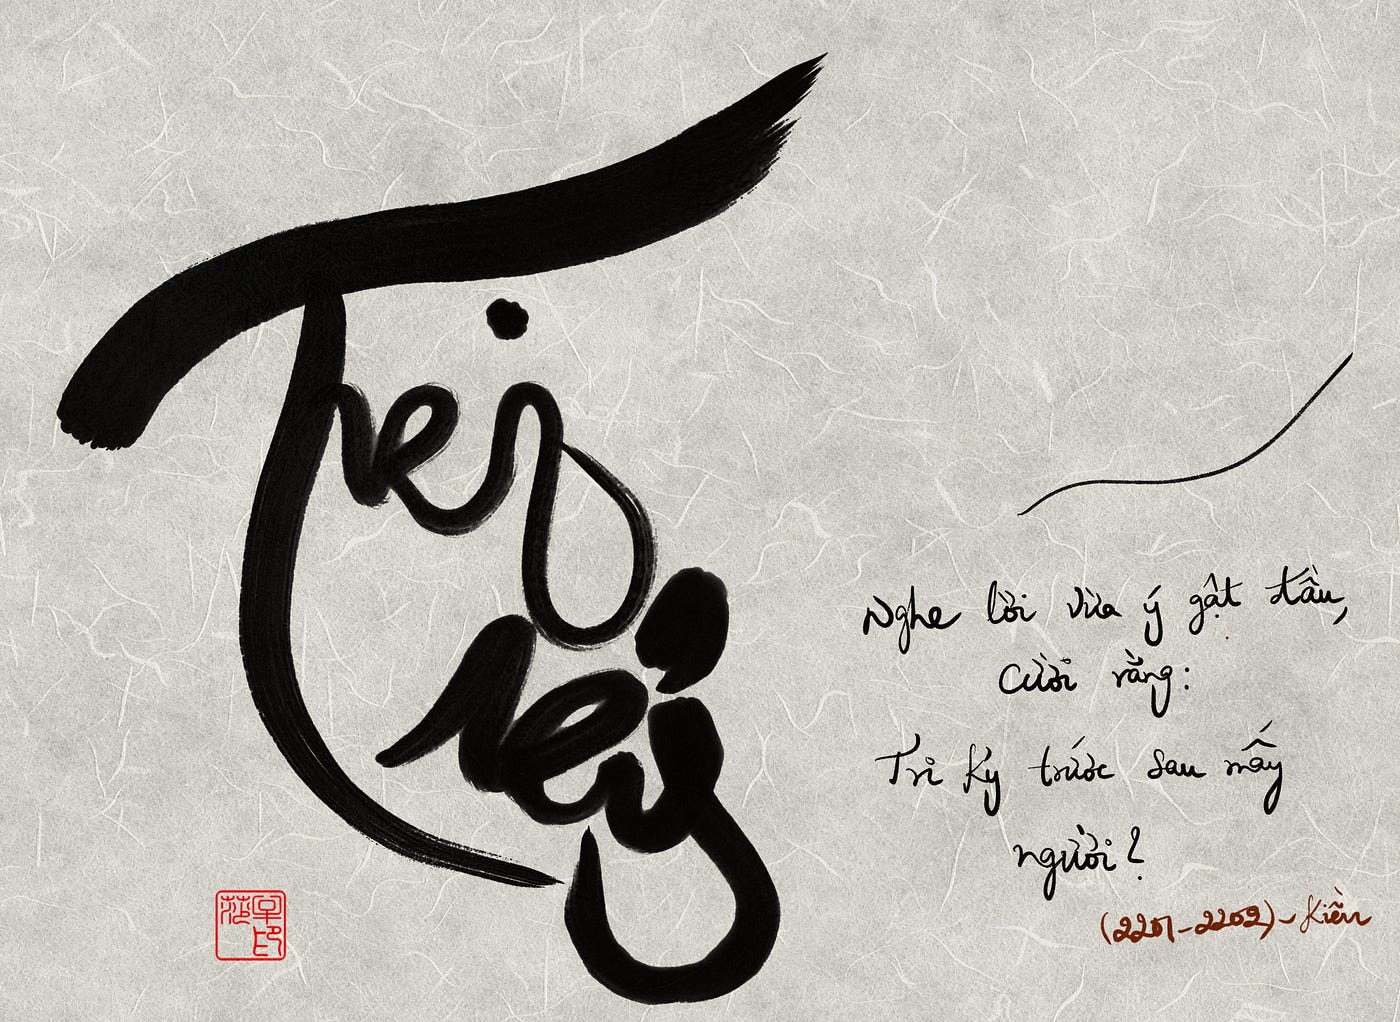 Nghe lời vừa ý gật đầu,
Cười rằng:
Tri Kỷ trước sau mấy
người?
(2201-2202) - Kiều